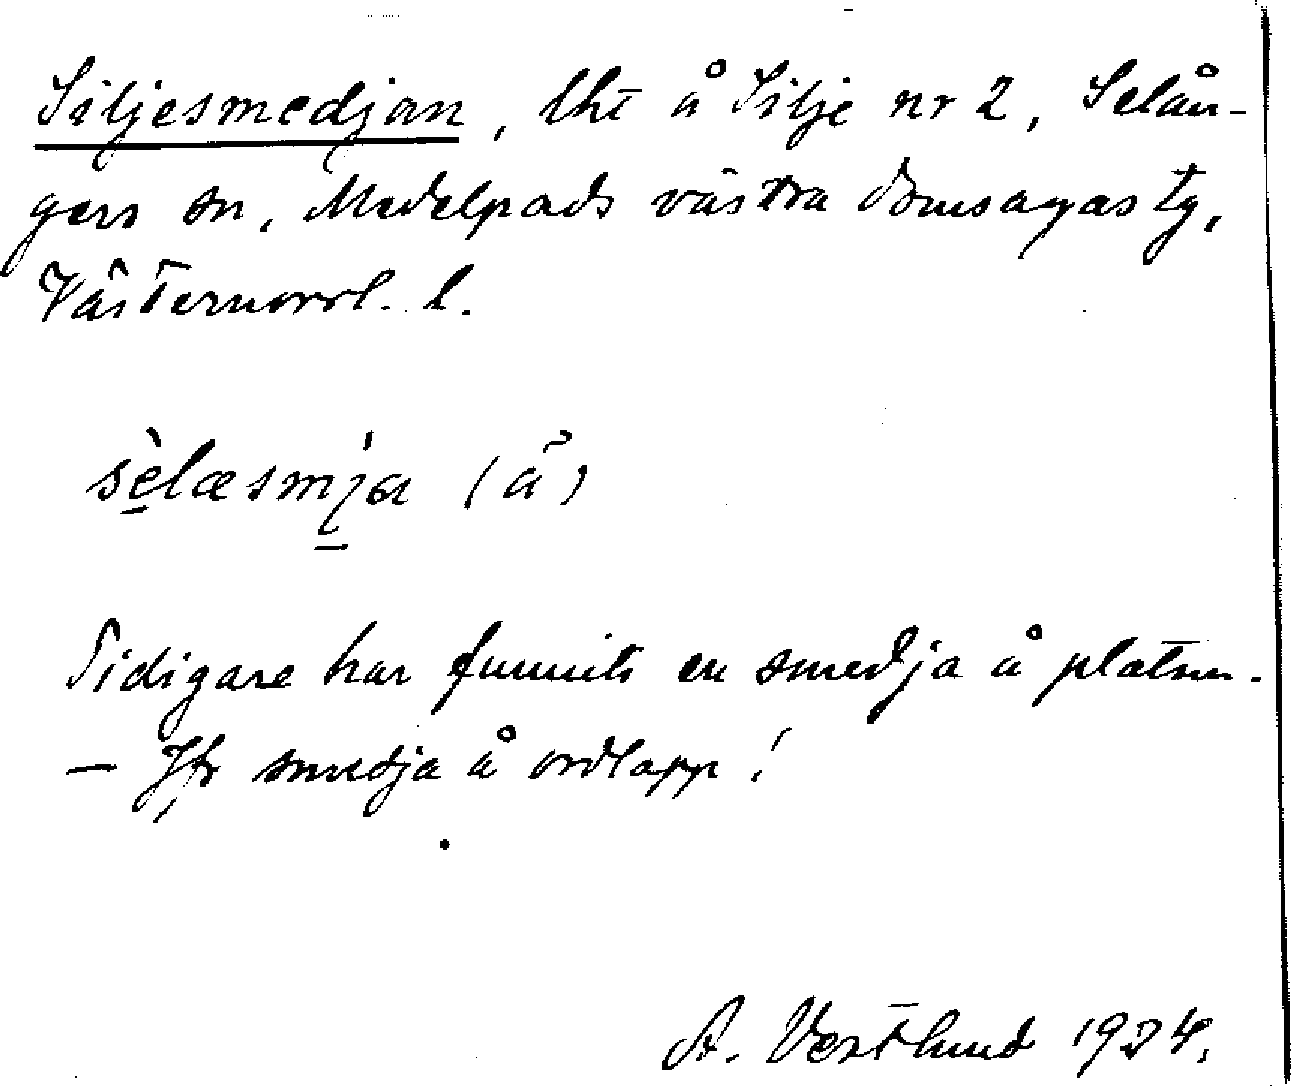 Siljesmedjan, lht å Silje nr 2, Selån-
gers sn, Medelpads västra domsagas tg,
Västernorrl. l.
sèlæsmja (ä)
Tidigare har funnits en smedja å platsen.
— Jfr smedja å ordlapp!
A. Vestlund 1924.